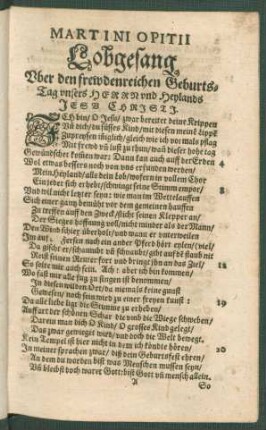 MARTINI OPITII
Lobgesang
Vber den frewdenreichen Geburts-
Tag vnsers HERRN vnd Heylands
JESV CHRISTI.
Ich bin/ O Jesu/ zwar bereiter deine Krippen
Vnd dich/ du süsses Kind/ mit diesen meinē Lippē
Zupreysen täglich/ gleich wie ich vormals pflag
Mit frewd vñ lust zu thun/ wañ dieser hohe tag
Gewündscher kom̃en war: Dann kan auch auff der Erden 4
Wol etwas bessers noch von vns erfunden werden/
Mein Heyland/ als dein Lob/ wofern in vollem Chor
Ein jeder sich erhebt/ schwinget seine Stimm empor/
Vnd wil nicht letzter seyn: wie man im Wettelauffen 8
Sich einer gantz bemüht vor dem gemeinen hauffen
Zu treffen auff den Zweck/ sticht seinen Klepper an/
Der Sieges hoffnung voll/ nicht minder als der Mann/
Den Wind schier überholt/ und wann er vnterweilen
Im auf. fersen nach ein ander Pferd hört eylen/
Da schäumt vnd schnaubt/ gibt auff den staub nit
Reist seinen Reuter fort und bringt ihn an das Ziel/
So solte mir auch sein. Ach! aber ich bin kommen/
Wo fast mir alle fug zu singen ist benommen/
In diesen wilden Ort/ da niemals keine gunst
Gewesen/ noch sein wird zu einer freyen kunst:
Da alle liebe ligt die Stimme zu erheben/
Auff art der schönen Schar die vmb die Wiege schweben/
Darein man dich O Kind/ O grosses Kind gelegt/
Das zwar gewieget wird/ vnd doch die Welt bewegt.
Kein Tempel ist hier nicht in dem ich köndte hören/ 20
In meiner sprachen zwar/ diß dein Geburtsfest ehren/
An dem du worden bist was Menschen müssen seyn/
Vñ bleibst doch warer Gott: bist Gott vñ mensch allein.
A So